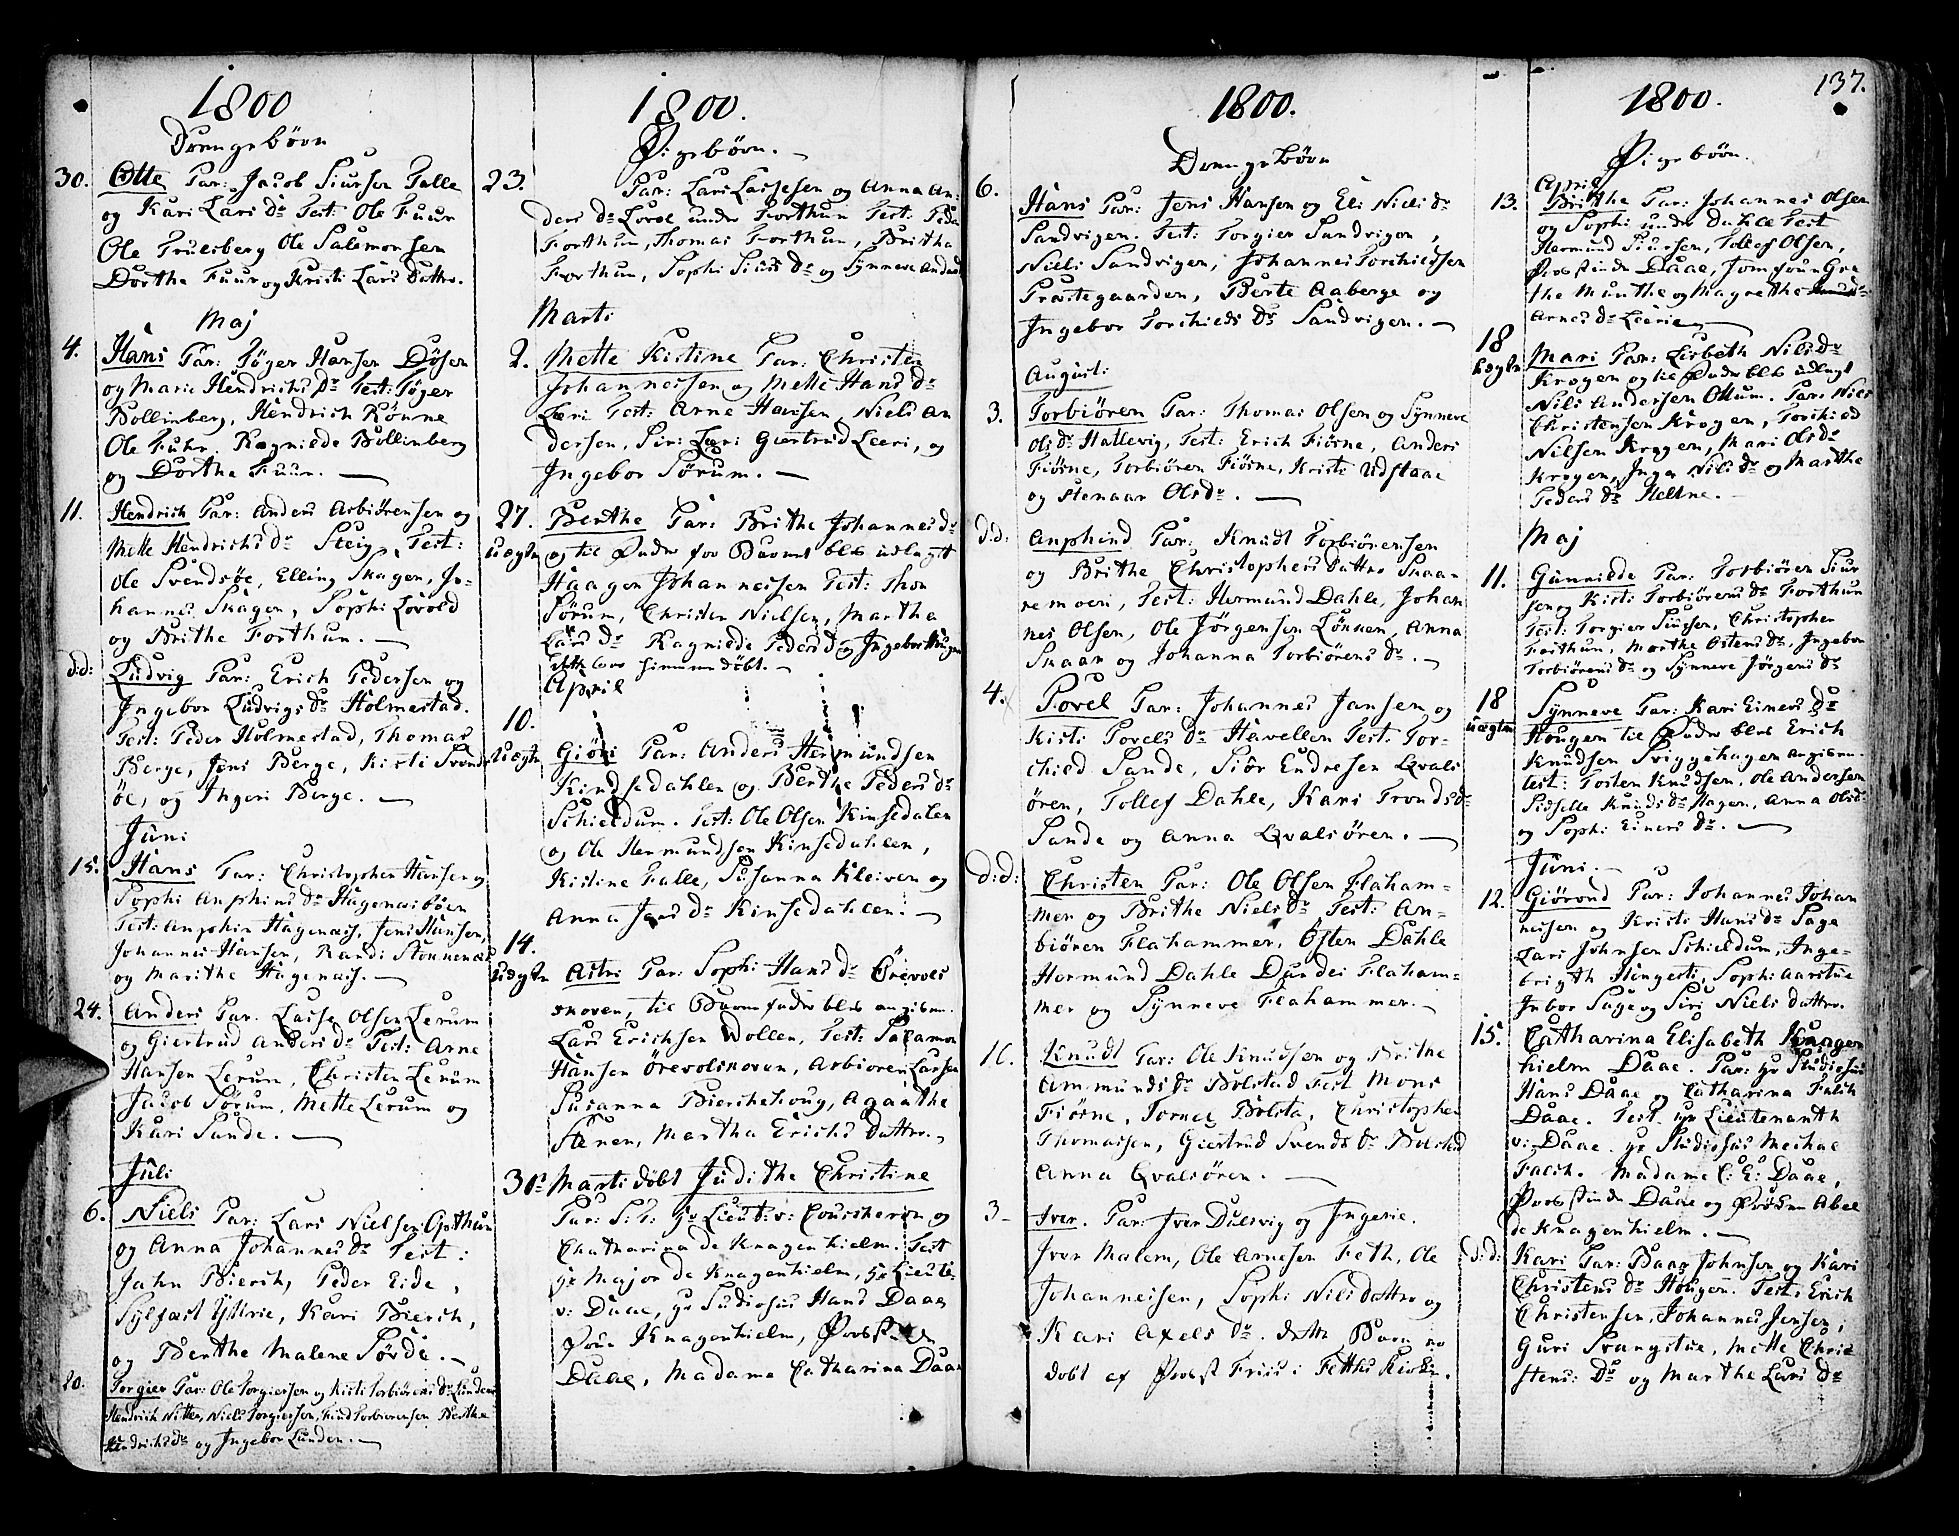 1800
Drengebørn
30. Otte Par: Jacob Siursen Falle
og Kari Lars Dr Test: Ole Fuur
Ole Trulsberg Ole Salemonsen
Dorthe Fuur og Kristi Lars dattr.
Maj
4. Hans Par: Tøger Hansen Døsen
og Marie Hendrichs Dr Test: Tøger
Bollinberg, Hendrich Rønne
Ole Fuhr, Ragnilde Bollinberg
og Dorthe Fuur.
11. Hendrich Par: Anders Arbiørensen og
Mette Hendrichs dr Steig, Test:
Ole Svendsøe, Elling Skagen, Jo-
hannes Skagen, Sophi Lovold
og Brithe Forthun.
d:d: Ludvig Par: Erich Pedersen og
Ingebor Ludvigs Dr Holmestad.
Test: Peder Holmestad, Thomas
Berge, Jens Berge, Kirsti Svends
øe, og Ingeri Berge.
Juni
15. Hans Par: Christopher Hansen og
Sophi Anphins Dr Hagenæsbøen
Test: Anphin Hagenæs, Jens Hansen,
Johannes Hansen, Randi Stonnenæs
og Marithe Hagenæs.
24. Anders Par. Lasse Olsen Lerum
og Giertrud Anders dr Test: Arne
Hansen Lerum, Christen Lerum
Jacob Sørum, Mette Lerum og
Kari Sande.
Juli
6. Niels Par: Lars Nielsen Gothun
og Anna Johannes dr Test:
Jahn Biersk, Peder Eide,
Sylfæst Ysterie, Kari Biersk,
og Berthe Malene Sørde.
20. Torgier Par: Ole Torgiersen og Kirsti Torbiørens dr Lunden
Hendrich Nitter, Niels Torgiersen, Find Torbiørensen Berthe
Hendrichs dr og Ingebor Lunden.
1800.
Pigebørn.
23. Par: Lars Lassesen og Anna An-
ders Dr Lovse under Forthun Test: Peder
Forthun, Thomas Forthun, Brithe
Forthun, Sophi Siurs Dr og Synneve Anders
Marti
2. Mette Kistine Par: Christen
Johannessen og Mette Hans dr
Leri Test: Arne Hansen, Niels An
dersen, Giertrud Leeri, og
Ingebor Sørum.
27. Berthe Par: Brithe Johannes dr
uægte og til Fader for Barnet blev udlagt
Haagen Johannessen Test: Thom
Sørum, Christen Nielsen, Martha
Lars dr Ragnilde Peders d og Ingebor Haugen
hiemmedøbt.
April
10. Giøri Par: Anders Hermundsen
uægte Kindsedahlen og Berthe Peders dr
Schieldum. Test: Ole Olsen Kinsedalen
og Ole Hermundsen Kinsedahlen,
Kistine Falle, Susanna Kleiven og
Anna Jens dr Kinsedahlen.
14. Astri Par: Sophi Hans dr Örevols
uægte skoven, til Barnefader blev angiven
Lars Erichsen Vollen, Test: Salamon
Hansen Örevolskoven, Arbiøren Larsen
Susanna Bierckehoug, Agaathe
Stenen, Martha Erichs dattr.
30. Marti døbt Judithe Christine
Par: S:T: Hr Lieut: v: Couscheron og
Chatharina de Knagenhielm. Test
Hr Major de Knagenhielm, Hr Lieute-
v: Daae, Hr Sudiosus Hans Daae
Frue Knagenhielm, Provstinde
Daae, Madame Catharina Daae
1800.
Drengebørn
6. Hans Par: Jens Hansen og Eli Niels dr
Sandvigen. Test: Torgier Sandvigen,
Niels Sandvigen, Johannes Torchieldsen
Præstegaarden, Berte Aaberge og
Ingebor Torchields Dr Sandvigen.
August:
3. Torbiören Par: Thomas Olsen og Synneve
Ols dr Hallevig, Test: Erich Fiörne, Anders
Fiörne, Torbiören Fiörne, Kristi Udstaae
og Stenaar Ols dr.
d:d: Anphind Par: Knudt Torbiörensen
og Brithe Christophers Dattr Skaar
remoen, Test: Hermund Dahle, Johan
nes Olsen, Ole Jörgensen Lönnen, Anna
Skaar og Johanna Torbiörens dr.
4. Povel Par: Johannes Jansen og
Kisti Povels Dr Havellen Test: Tor-
chield Sande, Siör Endresen Qvals
ören, Tollef Dahle, Kari Tronds dr
Sande og Anna Qvalsören.
d:d: Christen Par: Ole Olsen Flaham-
mer og Brithe Niels dr Test: An-
biören Flahammer, Østen Dahle
Hermund Dahle Durdei Flaham-
mer og Synneve Flahammer.
10. Knudt Par: Ole Knudsen og Brithe
Ammunds dr Bolstad Test Mons
Fiörne, Torne Bolsta, Christopher
Thomassen, Giertrud Svends dr Bolstad
Anna Qvalsören.
3- Iver. Par: Iver Dulsvig og Ingerie.
Iver Malem, Ole Arnesen Feth, Ole
Johannesen, Sophi Nils dattr og
Kari Axels dr. dette Barn er
døbt af Provst Friis i Fetts Kirke.
1800.
137.
Pigebørn.
April
13. Brithe Par: Johannes Olsen
og Sophi under Dahle Test
Hermund Siursen, Tollef Olsen,
Provstinde Daae, Jomfrun Gre
the Munthe og Magrethe
Arnes Dr Leerie
18 Mari Par: Lisbeth Nils dr
uægte Krogen og til Fader blev udlagt
Nils Andersen Ottum. Par: Niels
Christensen Krogen, Torchield
Nilsen Krogen, Kari Ols dr
Krogen, Inger Nils dr og Marthe
Peders Dr Heltne.
Maj
11. Gunnilde Par: Torbiören Siur
sen og Kirsti Torbiörens dr Forthun
Test: Torgier Siursen, Christopher
Forthun, Marthe Ostens dr, Ingebor
Torbiörens dr og Synneve Jörgens dr
18 Synneve Par: Kari Einers Dr
uægte Haugen til Fader blev Erich
Knudsen Sviggehagen angiven
Test: Torsten Knudsen, Ole Andersen
Sidselle Knuds dr Hagen, Anna Ols dr
og Sophi Einers dr.
Juni
12. Giörond Par: Johannes Johan
nesen og Kristi Hans dr Sage
Lars Johnsen Schieldum, Inge-
brigth Ringesti, Sophi Aarstue
Inbor Sage og Siri Niels dattr.
15. Catharina Elisabeth Knagen
hielm Daae. Par: Hr Studiosus
Hans Daae og Catharina Falch
Daae. Test Hr Lieutenanth
v: Daae. Hr Studiosus Mechal
Falch. Madame C: E: Daae,
Provstinde Daae og Frøken Abel
de Knagenhielm.
d:d: Kari Par: Baar Johnsen og Kari
Christens dr Hougen. Test: Erich
Christensen, Johannes Jensen,
Guri Svangstue, Mette Chris
stens: Dr og Marthe Lars dr